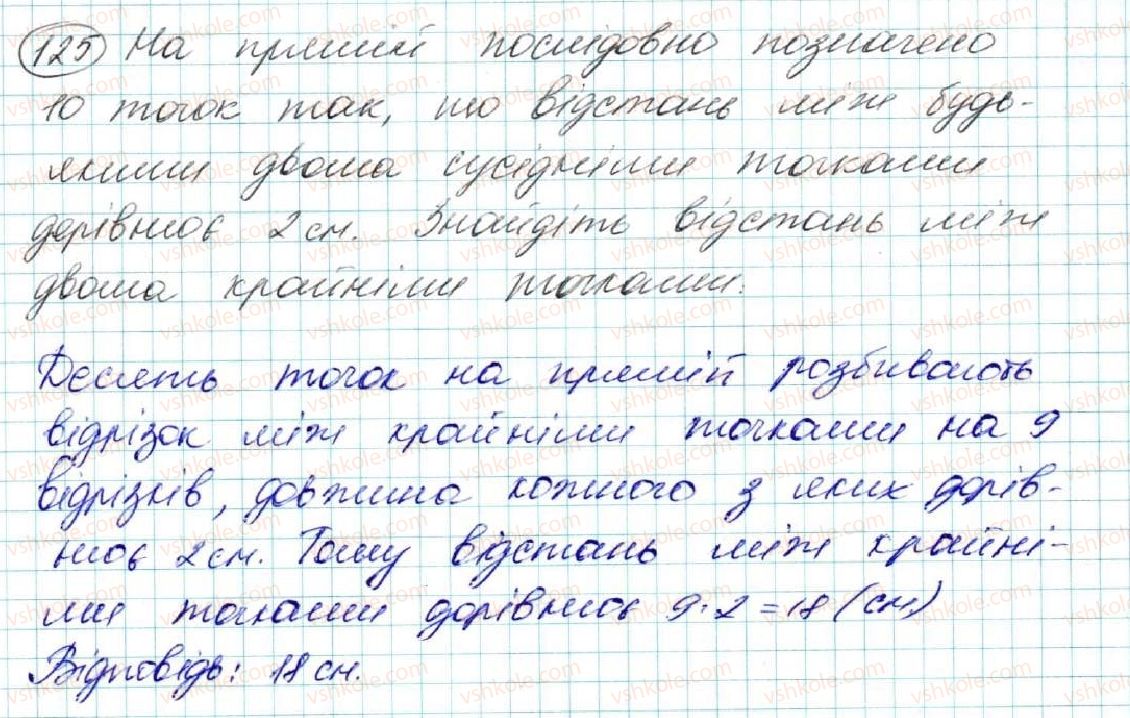 125 На прямій послідовно позначено
10 точок так, що відстань між будь-
якими двома сусідніми точками
дорівнює 2 см. Знайдіть відстань між
двома крайніми точками.
Десять точок на прямій розбивають
відрізок між крайніми точками на 9
відрізків, довжина кожного з яких дорів-
нює 2 см. Тому відстань між крайні-
ми точками дорівнює 9·2=18 (см)
Відповідь: 18 см.